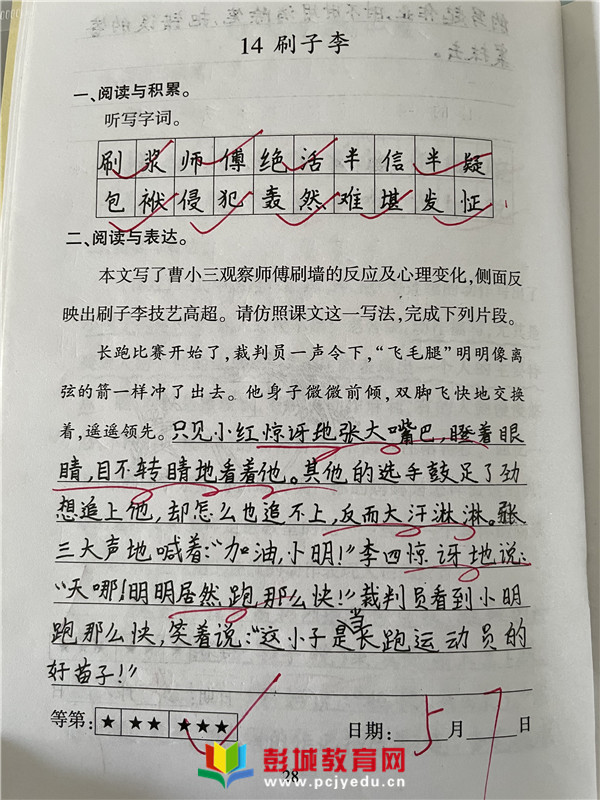 14 刷子李
一、阅读与积累。
听写字词。
刷浆师傅绝活半信半疑
包袱侵犯轰然难堪发怔
二、阅读与表达。
本文写了曹小三观察师傅刷墙的反应及心理变化,侧面反
映出刷子李技艺高超。请仿照课文这一写法,完成下列片段。
长跑比赛开始了,裁判员一声令下,“飞毛腿”明明像离
弦的箭一样冲了出去。他身子微微前倾,双脚飞快地交换
着,遥遥领先。只见小红惊讶地张大嘴巴,瞪着眼
睛,目不转睛地看着他。其他的选手鼓足了劲
想追上他,却怎么也追不上,反而大汗淋淋。张
三大声地喊着:“加油,小明!”李四惊讶地说:
“天哪!明明居然跑那么快!”裁判员看到小明
跑那么快,笑着说:“这小子是当长跑运动员的
好苗子!”
等第: ★ ★★ ★★★ 日期: 5 月 7 日
28
彭城教育网
www.pcjyedu.cn